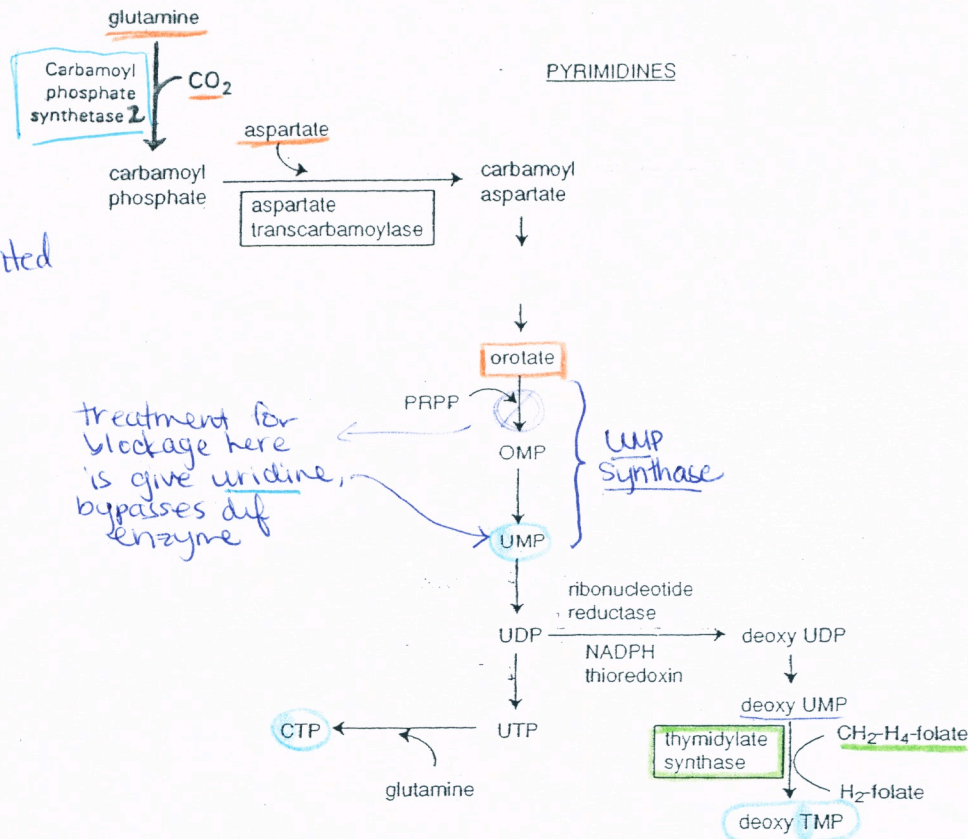 glutamine
Carbamoyl
phosphate
synthetase 2
CO2
PYRIMIDINES
aspartate
carbamoyl
phosphate
carbamoyl
aspartate
aspartate
transcarbamoylase
orotate
PRPP
OMP
UMP
Synthase
treatment for
blockage here
is give uridine,
bypasses def
enzyme
UMP
ribonucleotide
reductase
UDP
NADPH
thioredoxin
deoxy UDP
deoxy UMP
CTP
UTP
glutamine
thymidylate
synthase
CH2-H4-folate
H2-folate
deoxy TMP